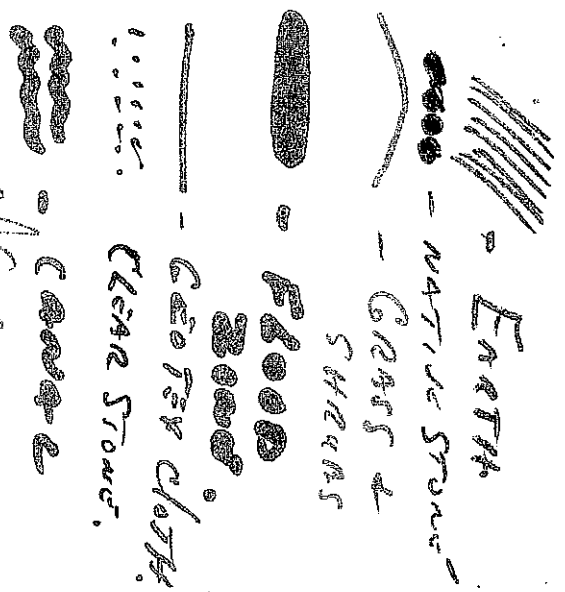 - EARTH.
- NATIVE STONE
- GRASS +
SHRUBS
- FLOOD
ZONE.
- GEOTEX CLOTH.
CLEAR STONE.
- CANAL